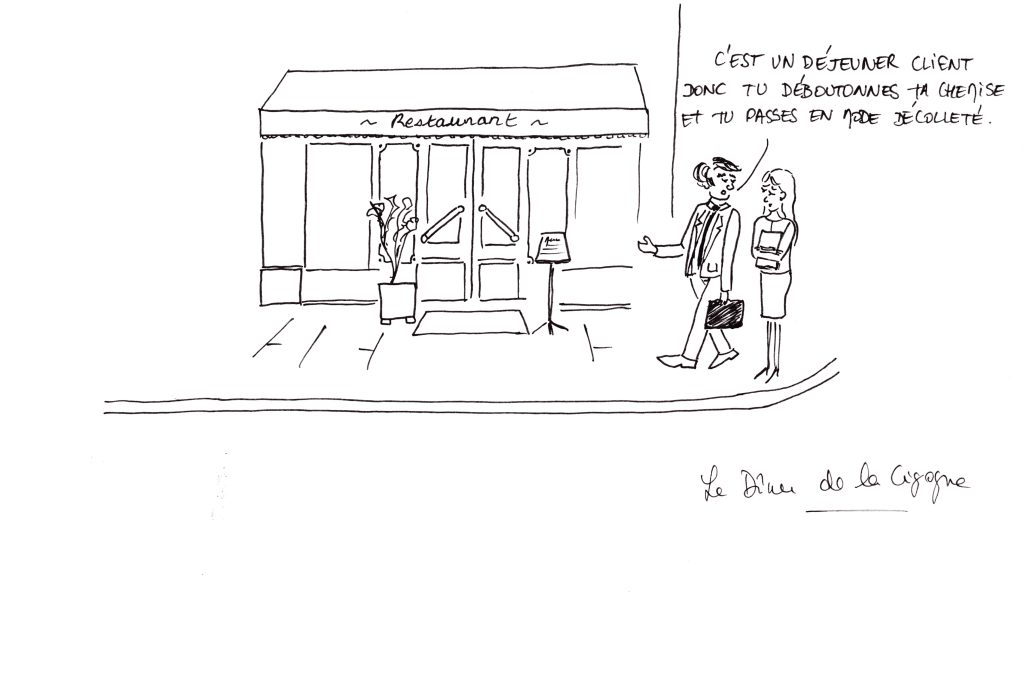 C'EST UN DÉJEUNER CLIENT
DONC TU DÉBOUTONNES TA CHEMISE
ET TU PASSES EN MODE DÉCOLLETÉ.
~ Restaurant ~
Menu
Le Dîner de la Cigogne